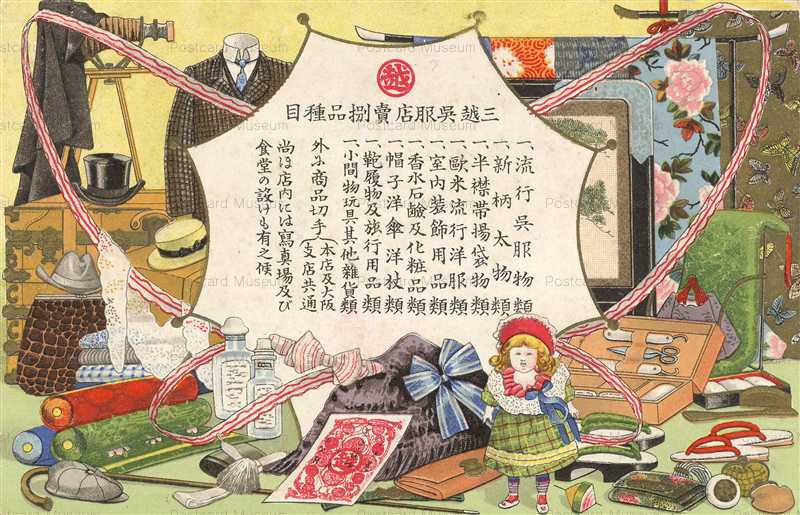 越
三越呉服店賣捌品種目
一、流行呉服物類
一、新柄太物類
一、半襟帯揚袋物類
一、歐米流行洋服類
一、室内装飾用品類
一、香水石鹸及化粧品類
一、帽子洋傘洋杖類
一、鞄履物及旅行用品類
一、小間物玩具其他雜貨類
外ニ商品切手(本店及大阪支店共通)
尚ほ店内には寫真場及び
食堂の設けも有之候
Postcard Museum